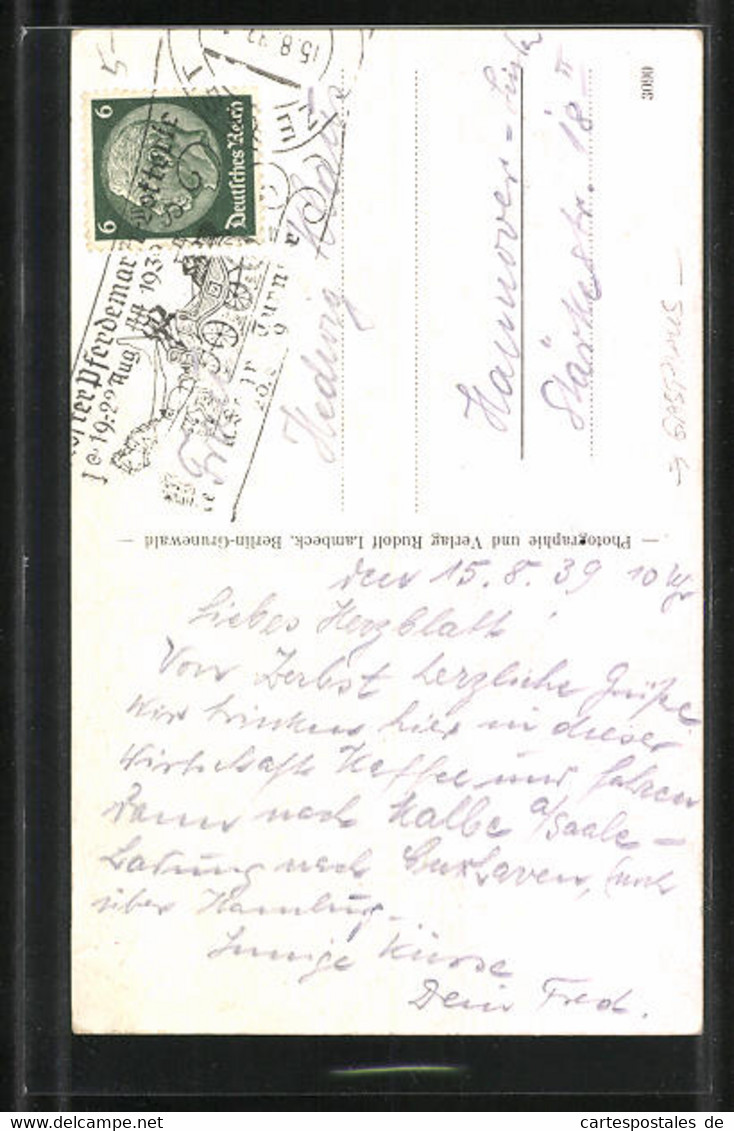 5-
15.8.39
6
6
Deutsches Reich
Lotterie
Pferdemar
19.-22 Aug 193
Hedwig
Hannover-
Stärkestr. 18 II
3090
→ GASTHAUS —
— Photographie und Verlag Rudolf Lambeck, Berlin-Grunewald —
den 15.8.39 10
Liebes Herzblatt!
Von Zerbst herzliche Grüße
Wir trinken hier in dieser
Wirtschaft Kaffee und fahren
dann nach Kalbe a/Saale -
Ladung nach Cuxhaven,
über Hamburg.
Innige Küsse
Dein Fred.
cartespostales de
www.oldthing.de